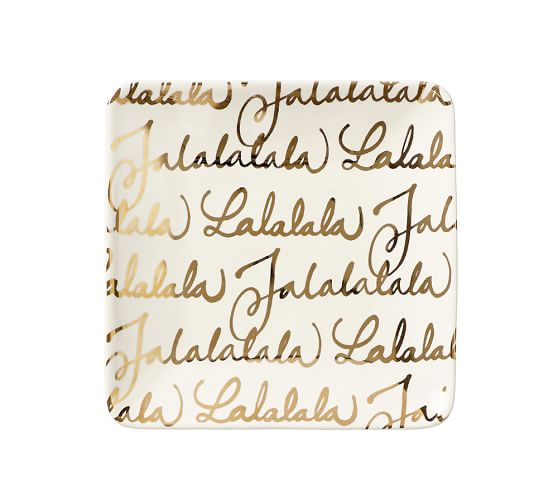 alalala Falalalala
Falalalala Lalala
lala Lalalala Fal
alalala Falalalala
Falalalala Lalala
lala Lalalala Fal